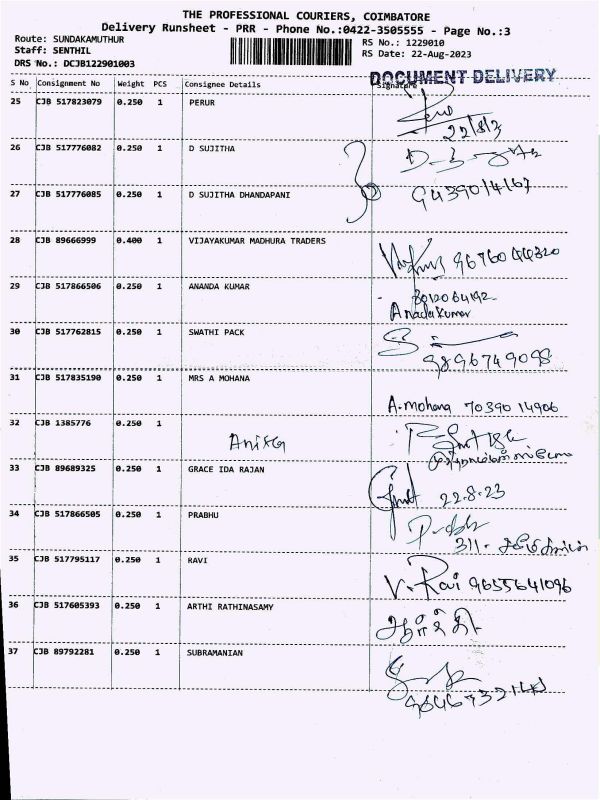 THE PROFESSIONAL COURIERS, COIMBATORE
Delivery Runsheet - PRR - Phone No.:0422-3505555 - Page No.:3
Route: SUNDAKAMUTHUR RS No.: 1229010
Staff: SENTHIL RS Date: 22-Aug-2023
DRS No.: DCJB122901003
DOCUMENT DELIVERY
S No Consignment No Weight PCS Consignee Details Signature
25 CJB 517823079 0.250 1 PERUR
22/8/2
26 CJB 517776082 0.250 1 D SUJITHA
27 CJB 517776085 0.250 1 D SUJITHA DHANDAPANI
28 CJB 89666999 0.400 1 VIJAYAKUMAR MADHURA TRADERS
29 CJB 517866506 0.250 1 ANANDA KUMAR
Anada Kumar
30 CJB 517762815 0.250 1 SWATHI PACK
9896749098
31 CJB 517835190 0.250 1 MRS A MOHANA
A-mohana 70390 14906
32 CJB 1385776 0.250 1
Anitha
33 CJB 89689325 0.250 1 GRACE IDA RAJAN
22-8-23
34 CJB 517866505 0.250 1 PRABHU
311-
35 CJB 517795117 0.250 1 RAVI
V. Ravi 9655641096
36 CJB 517605393 0.250 1 ARTHI RATHINASAMY
ஆர்த்தி
37 CJB 89792281 0.250 1 SUBRAMANIAN